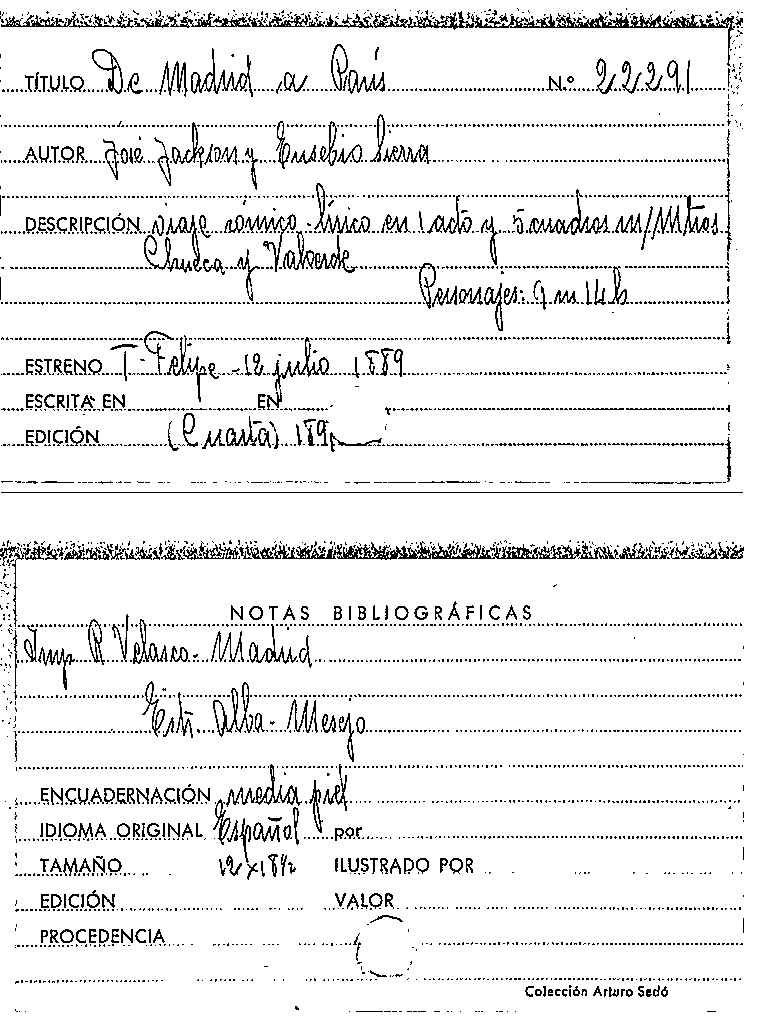 TÍTULO De Madrid a París N.º 22291
AUTOR José Jackson y Eusebio Sierra
DESCRIPCIÓN viaje cómico-lírico en 1 acto y 5 cuadros m/Mtros
Chueca y Valverde
Personajes: 9 m 14 h
ESTRENO T. Felipe - 12 julio 1889
ESCRITA EN EN
EDICIÓN (Cuarta)
NOTAS BIBLIOGRÁFICAS
Imp R Velasco - Madrid
Estr. Alba - Mesejo
ENCUADERNACIÓN media piel
IDIOMA ORIGINAL Español por
TAMAÑO 12 x 18½ ILUSTRADO POR
EDICIÓN VALOR
PROCEDENCIA
Colección Arturo Sedó